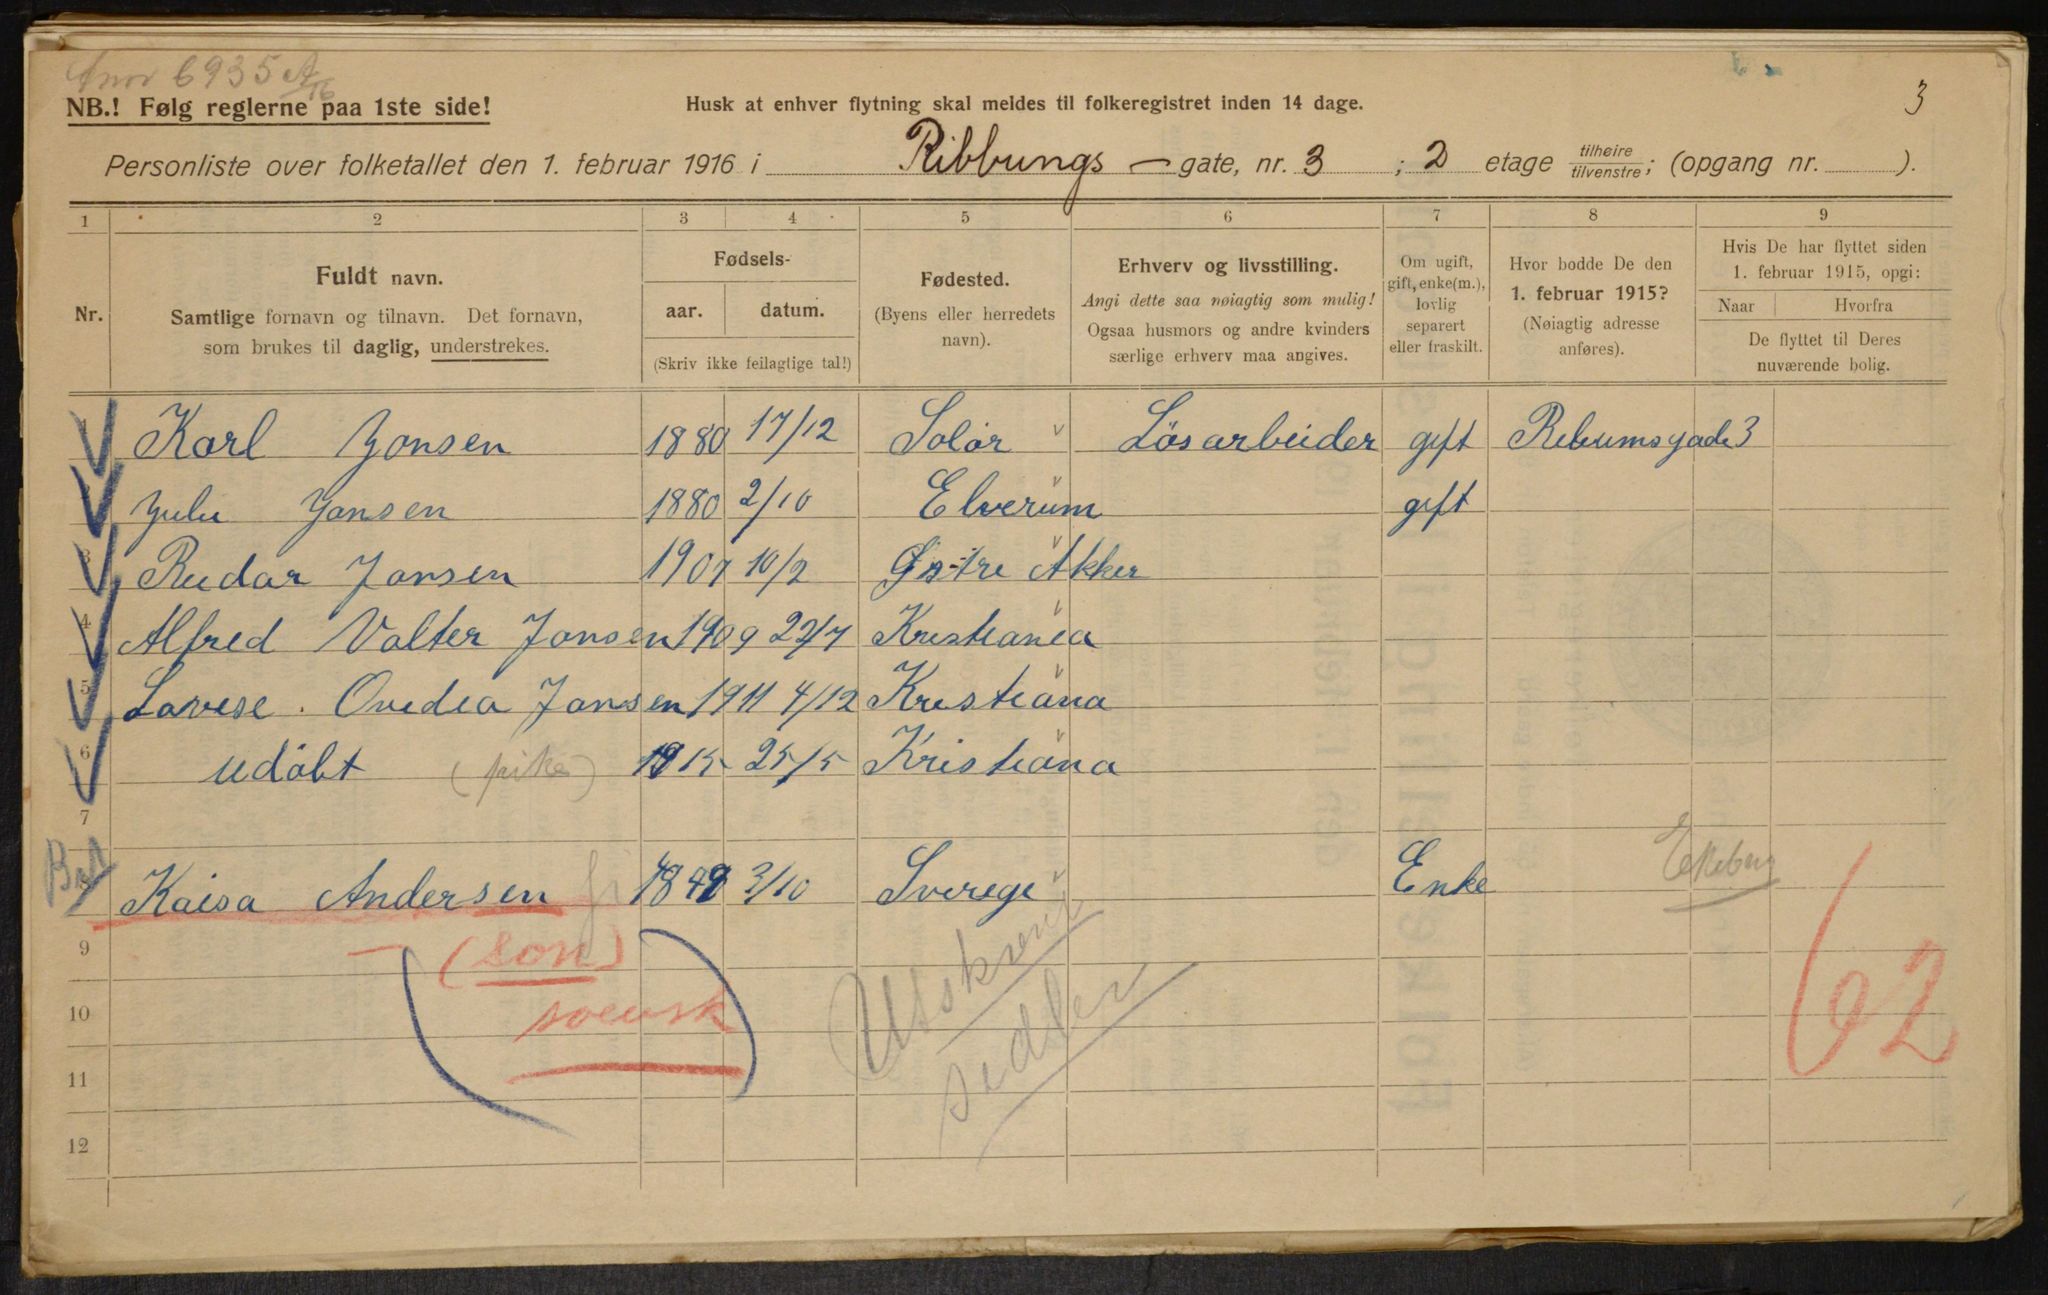 6935 A/16
NB.! Følg reglerne paa 1ste side!
Husk at enhver flytning skal meldes til folkeregistret inden 14 dage.
3
Personliste over folketallet den 1. februar 1916 i Ribbungs - gate, nr. 3 ; 2 etage tilhøire/tilvenstre; (opgang nr. ).
1 2 3 4 5 6 7 8 9
Nr.
Fuldt navn.
Samtlige fornavn og tilnavn. Det fornavn,
som brukes til daglig, understrekes.
Fødsels-
aar. datum.
(Skriv ikke feilagtige tal!)
Fødested.
(Byens eller herredets
navn).
Erhverv og livsstilling.
Angi dette saa nøiagtig som mulig!
Ogsaa husmors og andre kvinders
særlige erhverv maa angives.
Om ugift,
gift, enke(m.),
lovlig
separert
eller fraskilt.
Hvor bodde De den
1. februar 1915?
(Nøiagtig adresse
anføres).
Hvis De har flyttet siden
1. februar 1915, opgi:
Naar Hvorfra
De flyttet til Deres
nuværende bolig.
Karl Jonsen 1880 17/12 Solør Løsarbeider gift 3
Jonsen 1880 2/10 Elverum gift
3 Reidar Jonsen 1907 10/2 Østre Akker
4 Alfred Valter Jonsen 1909 22/7 Kristiania
5 Lovise Ovedia Jonsen 1911 4/12 Kristiana
6 udöbt (pike) 1915 25/5 Kristiana
7
8 Kaisa Andersen 3/10 Sverege Enke Ekeberg
9 (son)
10 svensk
11
12
Utskrevet
sedler
62